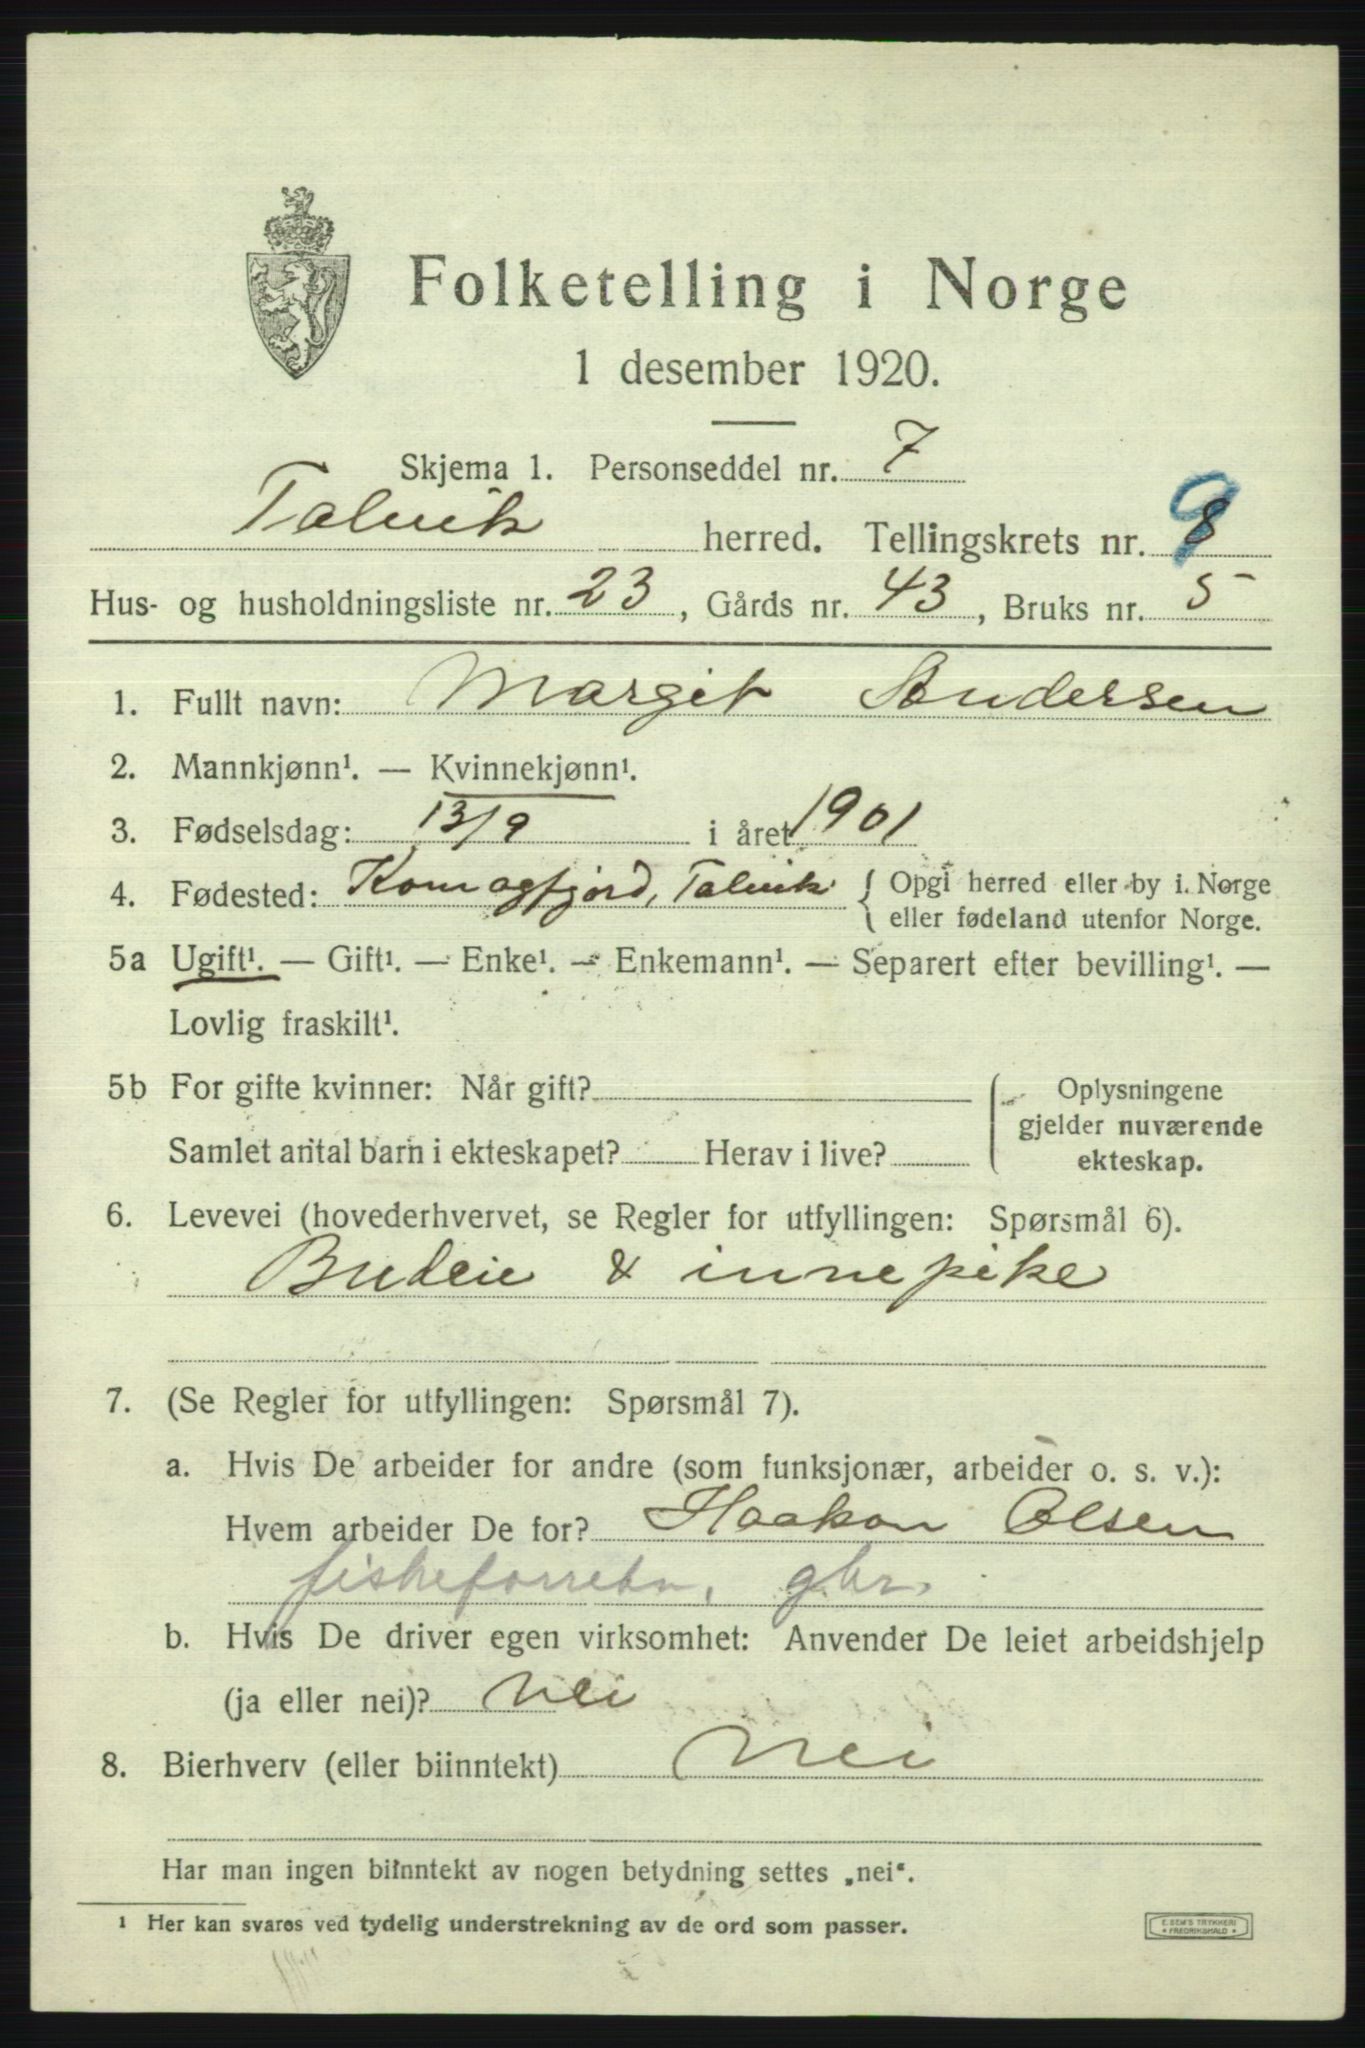 Folketelling i Norge
1 desember 1920.
Skjema 1. Personseddel nr. 7
Talvik herred. Tellingskrets nr. 8 9
Hus- og husholdningsliste nr. 23, Gårds nr. 43, Bruks nr. 5
1. Fullt navn: Margit Andersen
2. Mannkjønn¹. — Kvinnekjønn¹.
3. Fødselsdag: 13/9 i året 1901
4. Fødested: Komagfjord, Talvik { Opgi herred eller by i Norge
eller fødeland utenfor Norge.
5a Ugift¹. — Gift¹. — Enke¹. — Enkemann¹. — Separert efter bevilling¹. —
Lovlig fraskilt¹.
5b For gifte kvinner: Når gift?
Samlet antal barn i ekteskapet? Herav i live?
Oplysningene
gjelder nuværende
ekteskap.
6. Levevei (hovederhvervet, se Regler for utfyllingen: Spørsmål 6).
Budeie & innepike
7. (Se Regler for utfyllingen: Spørsmål 7).
a. Hvis De arbeider for andre (som funksjonær, arbeider o. s. v.):
Hvem arbeider De for? Haakon Olsen
fiskeforretn, gbr.
b. Hvis De driver egen virksomhet: Anvender De leiet arbeidshjelp
(ja eller nei)? nei
8. Bierhverv (eller biinntekt) Nei
Har man ingen biinntekt av nogen betydning settes „nei“.
¹ Her kan svares ved tydelig understrekning av de ord som passer.
E. SEM'S TRYKKERI
• FREDRIKSHALD •